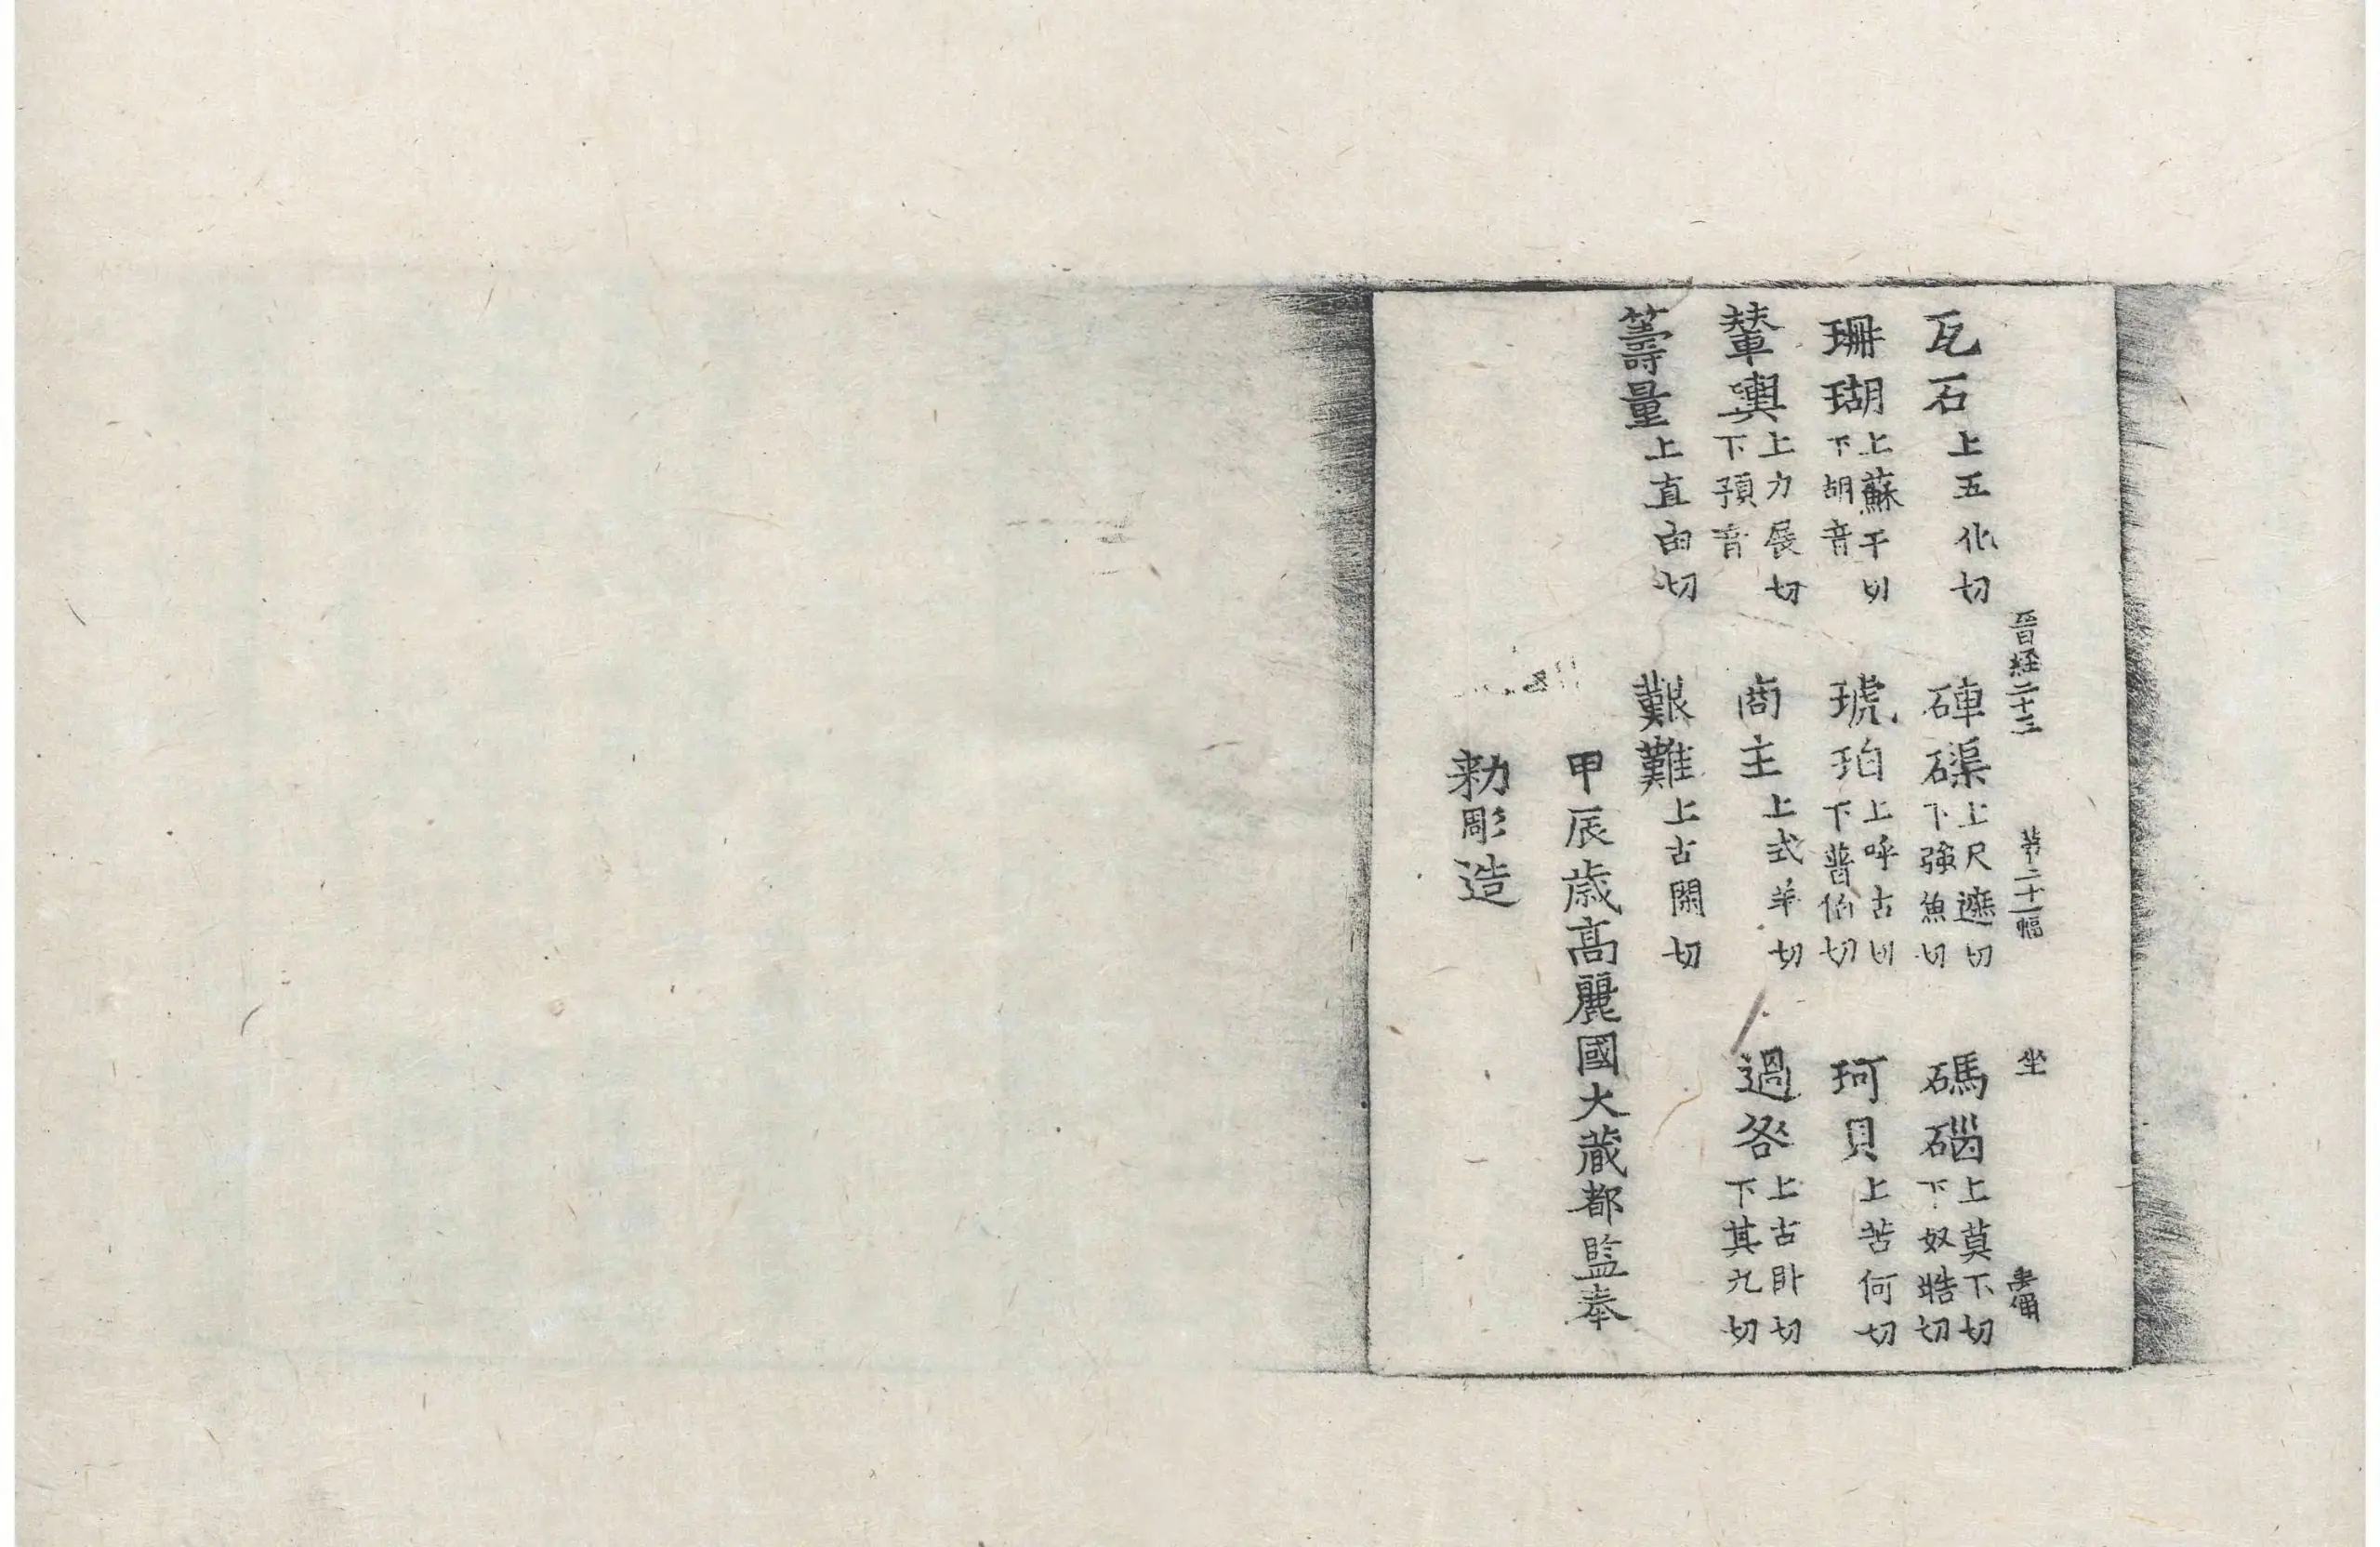 晉經二十三 第二十一幅 坐
瓦石上五化切 硨磲上尺遮切下強魚切 碼碯上莫下切下奴晧切
珊瑚上蘇干切下胡音 琥珀上呼古切下普伯切 珂貝上苦何切
輦輿上力展切下預音 商主上式羊切 過咎上古卧切下其九切
籌量上直由切 艱難上古閑切
甲辰歲高麗國大藏都監奉
勑彫造